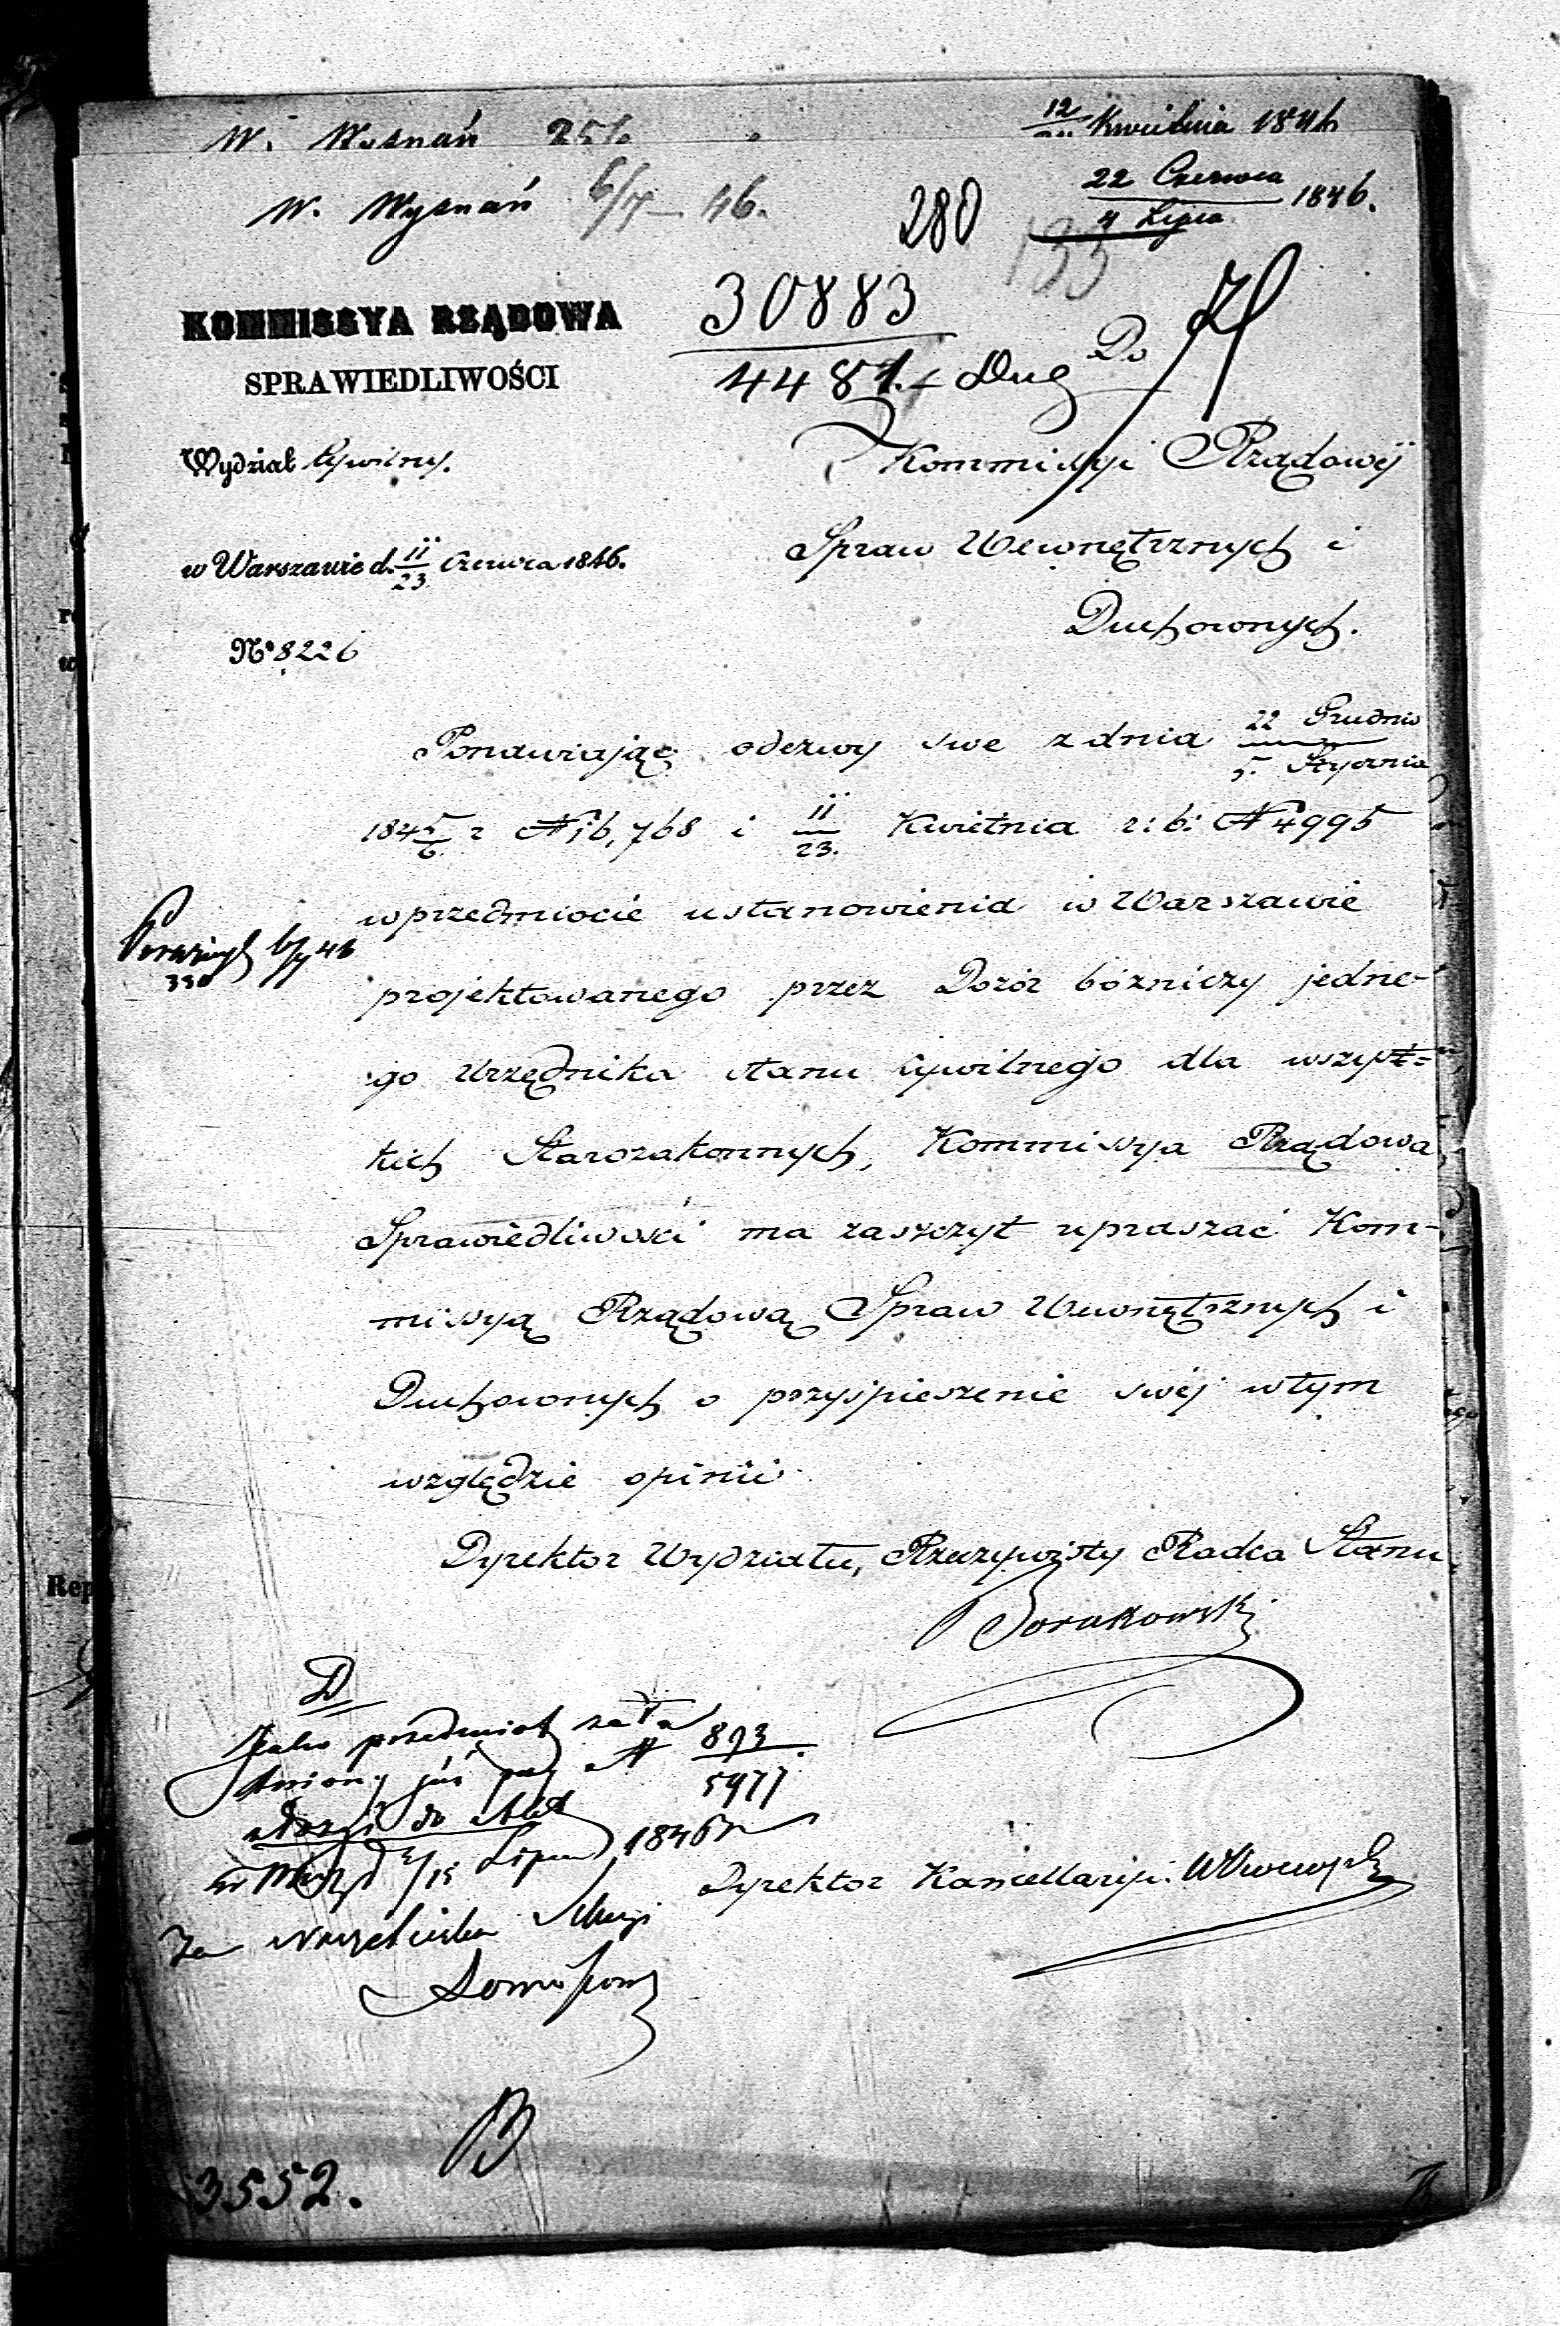 W. Wyznań 25/6
12 Kwietnia 1846
W. Wyznań 6/7 46.
280
22 Czerwca
4 Lipca 1846.
133
30883
4481. Dug
KOMMISSYA RZĄDOWA
SPRAWIEDLIWOŚCI
Wydział Cywilny.
w Warszawie d. 11/23 Czerwca 1846.
Nº 8226
Do
Kommissyi Rządowéj
Spraw Wewnętrznych i
Duchownych.
Ponawiając odezwy swe z dnia 22 Grudnia
5. Stycznia
1845/6 r N 16,768 i 11/23. Kwietnia r: b: N 4995
w przedmiocie ustanowienia w Warszawie
projektowanego przez Dozór bóżniczy jedne-
go Urzędnika stanu Cywilnego dla wszyst=
kich Starozakonnych, Kommissya Rządowa
Sprawiedliwości ma zaszczyt upraszać Kom-
missyą Rządową Spraw Wewnętrznych i
Duchownych o przyśpieszenie swéj w tym
względzie opinii.
6/7 46
330
Dyrektor Wydziału, Rzeczywisty Radca Stanu
D
Jako przedmiot zała
twiony już pod N 893
5977
złożyć do Akt
15 Lipca 1846 r
Za Naczelnika Sekcyi
Dyrektor Kancellaryi:
3552.